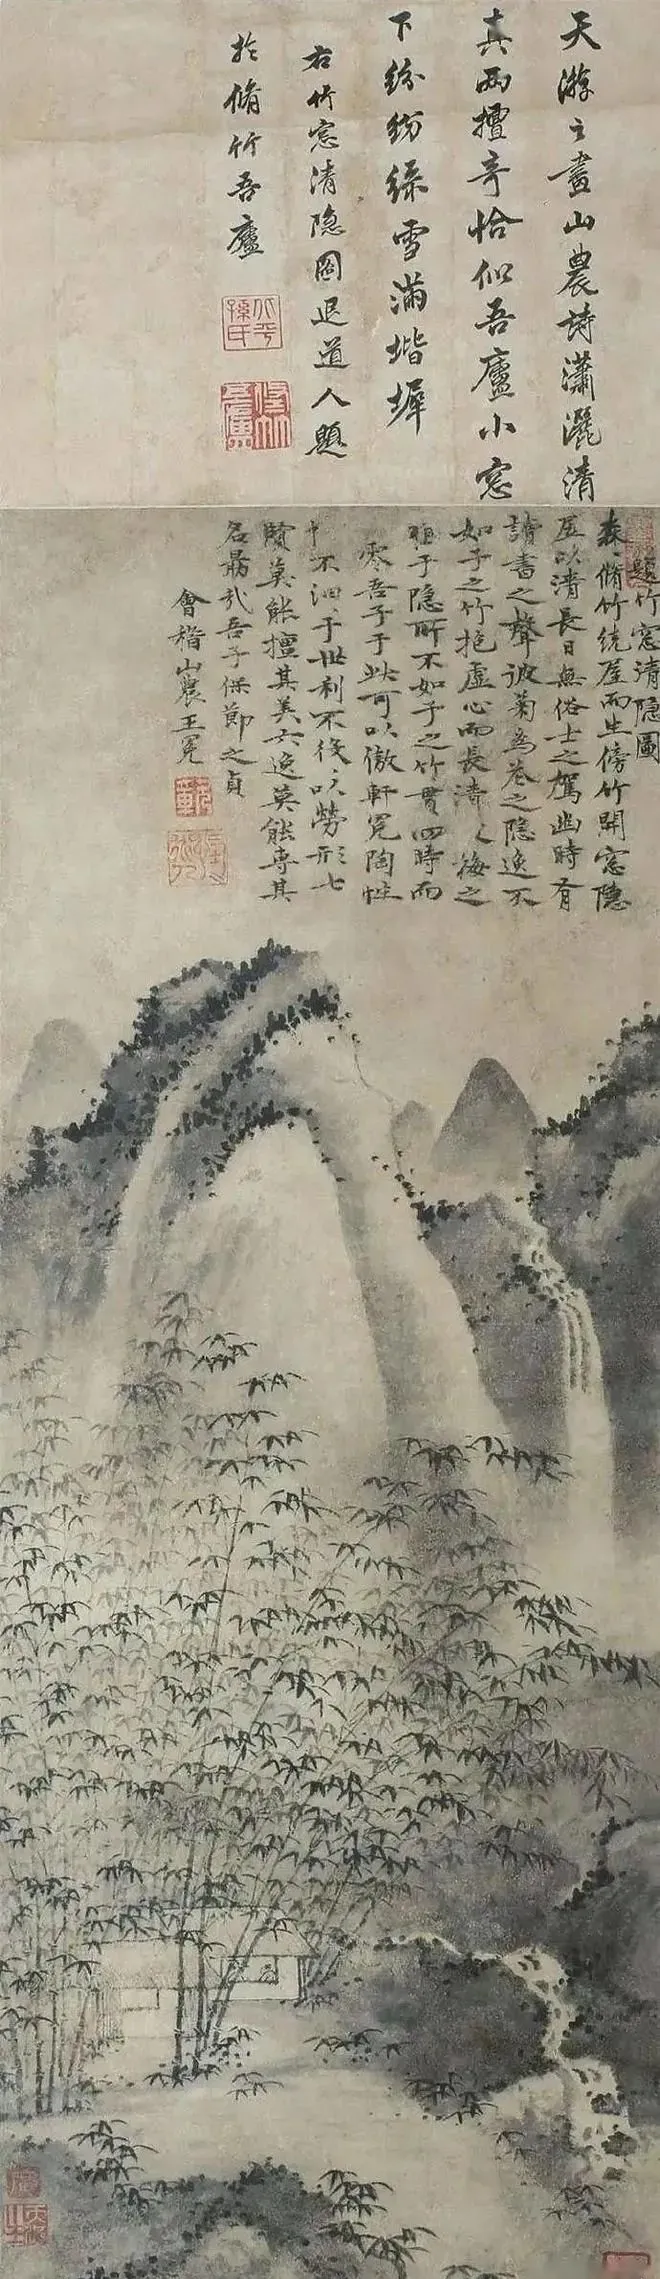 天游之畫山農詩瀟灑清
真兩擅奇恰似吾廬小窓
下紛紛綠雪滿堦墀
右竹窓清隐圖退道人題
於脩竹吾廬
北平孫氏
題竹窓清隐圖
森〻脩竹繞屋而生傍竹開窓隐
以清長日無俗士之駕幽時有
讀書之聲彼菊為花之隐逸不
如子之竹抱虚心而長清梅之
于隐所不如子之竹貫四時而
零吾子于此可以傲軒冕陶性
不汩于世利不役以勞形七
賢莫能擅其美六逸莫能専其
名勗哉吾子保節之貞
會稽山農王冕